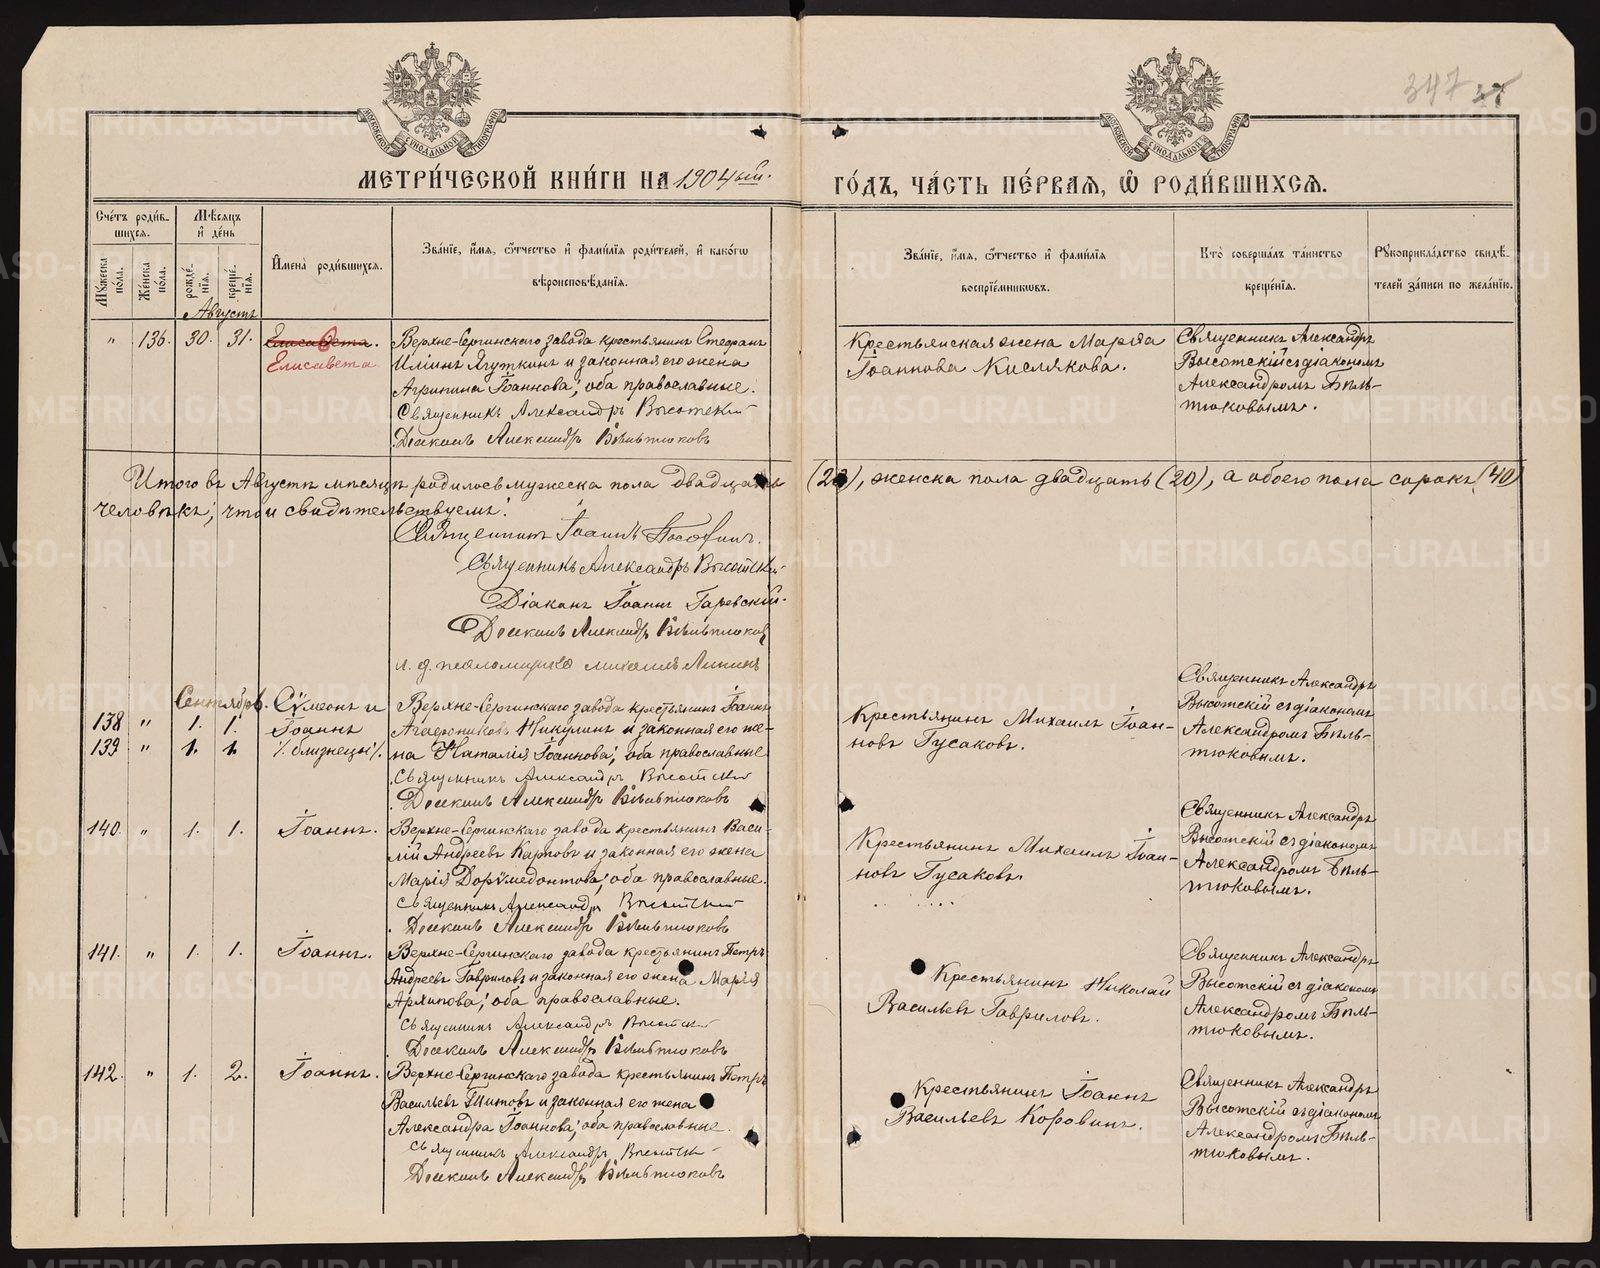 347 37
МЕТРИ́ЧЕСКОЙ КНИ́ГИ НА 1904ый.
ГО́ДЪ, ЧА́СТЬ ПЕ́РВАЯ, Ѿ РОДИ́ВШИХСЯ.
Сче́тъ роди́в-
шихся.
Мѣ́сяцъ
и де́нь
Имена̀ роди́вшихся.
Зва́нїе, и́мя, о́тчество и фами́лїя роди́телей, и како́гѡ
вѣроисповѣ́данїя.
Зва́нїе, и́мя, о́тчество и фами́лїя
воспрїе́мникѡвъ.
Кто̀ соверша́лъ та́инство
креще́нїя.
Рꙋкоприкла́дство свидѣ́-
телей за́писи по жела́нїю.
Мꙋ́жеска
по́ла.
Же́нска
по́ла.
рожде́-
нїя.
креще́-
нїя.
Августъ
" 136. 30. 31. Елисавета.
Елисавета
Верхне-Сергинскаго завода крестьянинъ Стефанъ
Илiинъ Ягуткинъ и законная его жена
Агрипина Iоаннова; оба православные.
Священникъ Александръ Высотскій
Діаконъ Александръ Бѣльтюковъ
Крестьянская жена Марія
Iоаннова Кислякова.
Священникъ Александръ
Высотскій съ діакономъ
Александромъ Бѣль-
тюковымъ.
Итого въ Августѣ мѣсяцѣ родилось мужеска пола двадцать (20), женска пола двадцать (20), а обоего пола сорокъ (40)
человѣкъ; что и свидѣтельствуемъ:
Священникъ Iоаннъ
Священникъ Александръ Высотскій
Діаконъ Iоаннъ Гаревскій.
Діаконъ Александръ Бѣльтюковъ
и. д. псаломщика Михаилъ Липинъ
Сентябрь.
138 " 1. 1.
139 " 1. 1.
Сѵмеонъ и
Iоаннъ
/близнецы/.
Верхне-Сергинскаго завода крестьянинъ Iоаннъ
Агафониковъ Никулинъ и законная его же-
на Наталія Iоаннова; оба православные
Священникъ Александръ Высотскій
Діаконъ Александръ Бѣльтюковъ
Крестьянинъ Михаилъ Iоан-
новъ Гусаковъ.
Священникъ Александръ
Высотскій съ діакономъ
Александромъ Бѣль-
тюковымъ.
140. " 1. 1. Iоаннъ.
Верхне-Сергинскаго завода крестьянинъ Васи-
лій Андреевъ Карповъ и законная его жена
Марія Дорѵмедонтова; оба православные.
Священникъ Александръ Высотскій
Діаконъ Александръ Бѣльтюковъ
Крестьянинъ Михаилъ Iоан-
новъ Гусаковъ.
Священникъ Александръ
Высотскій съ діакономъ
Александромъ Бѣль-
тюковымъ.
141. " 1. 1. Iоаннъ.
Верхне-Сергинскаго завода крестьянинъ Петръ
Андреевъ Гавриловъ и законная его жена Марія
Архипова; оба православные.
Священникъ Александръ Высотскій
Діаконъ Александръ Бѣльтюковъ
Крестьянинъ Николай
Васильевъ Гавриловъ.
Священникъ Александръ
Высотскій съ діакономъ
Александромъ Бѣль-
тюковымъ.
142. " 1. 2. Iоаннъ.
Верхне-Сергинскаго завода крестьянинъ Петръ
Васильевъ Титовъ и законная его жена
Александра Iоаннова; оба православные.
Священникъ Александръ Высотскій
Діаконъ Александръ Бѣльтюковъ
Крестьянинъ Iоаннъ
Васильевъ Коровинъ.
Священникъ Александръ
Высотскій съ діакономъ
Александромъ Бѣль-
тюковымъ.
METRIKI.GASO-URAL.RU